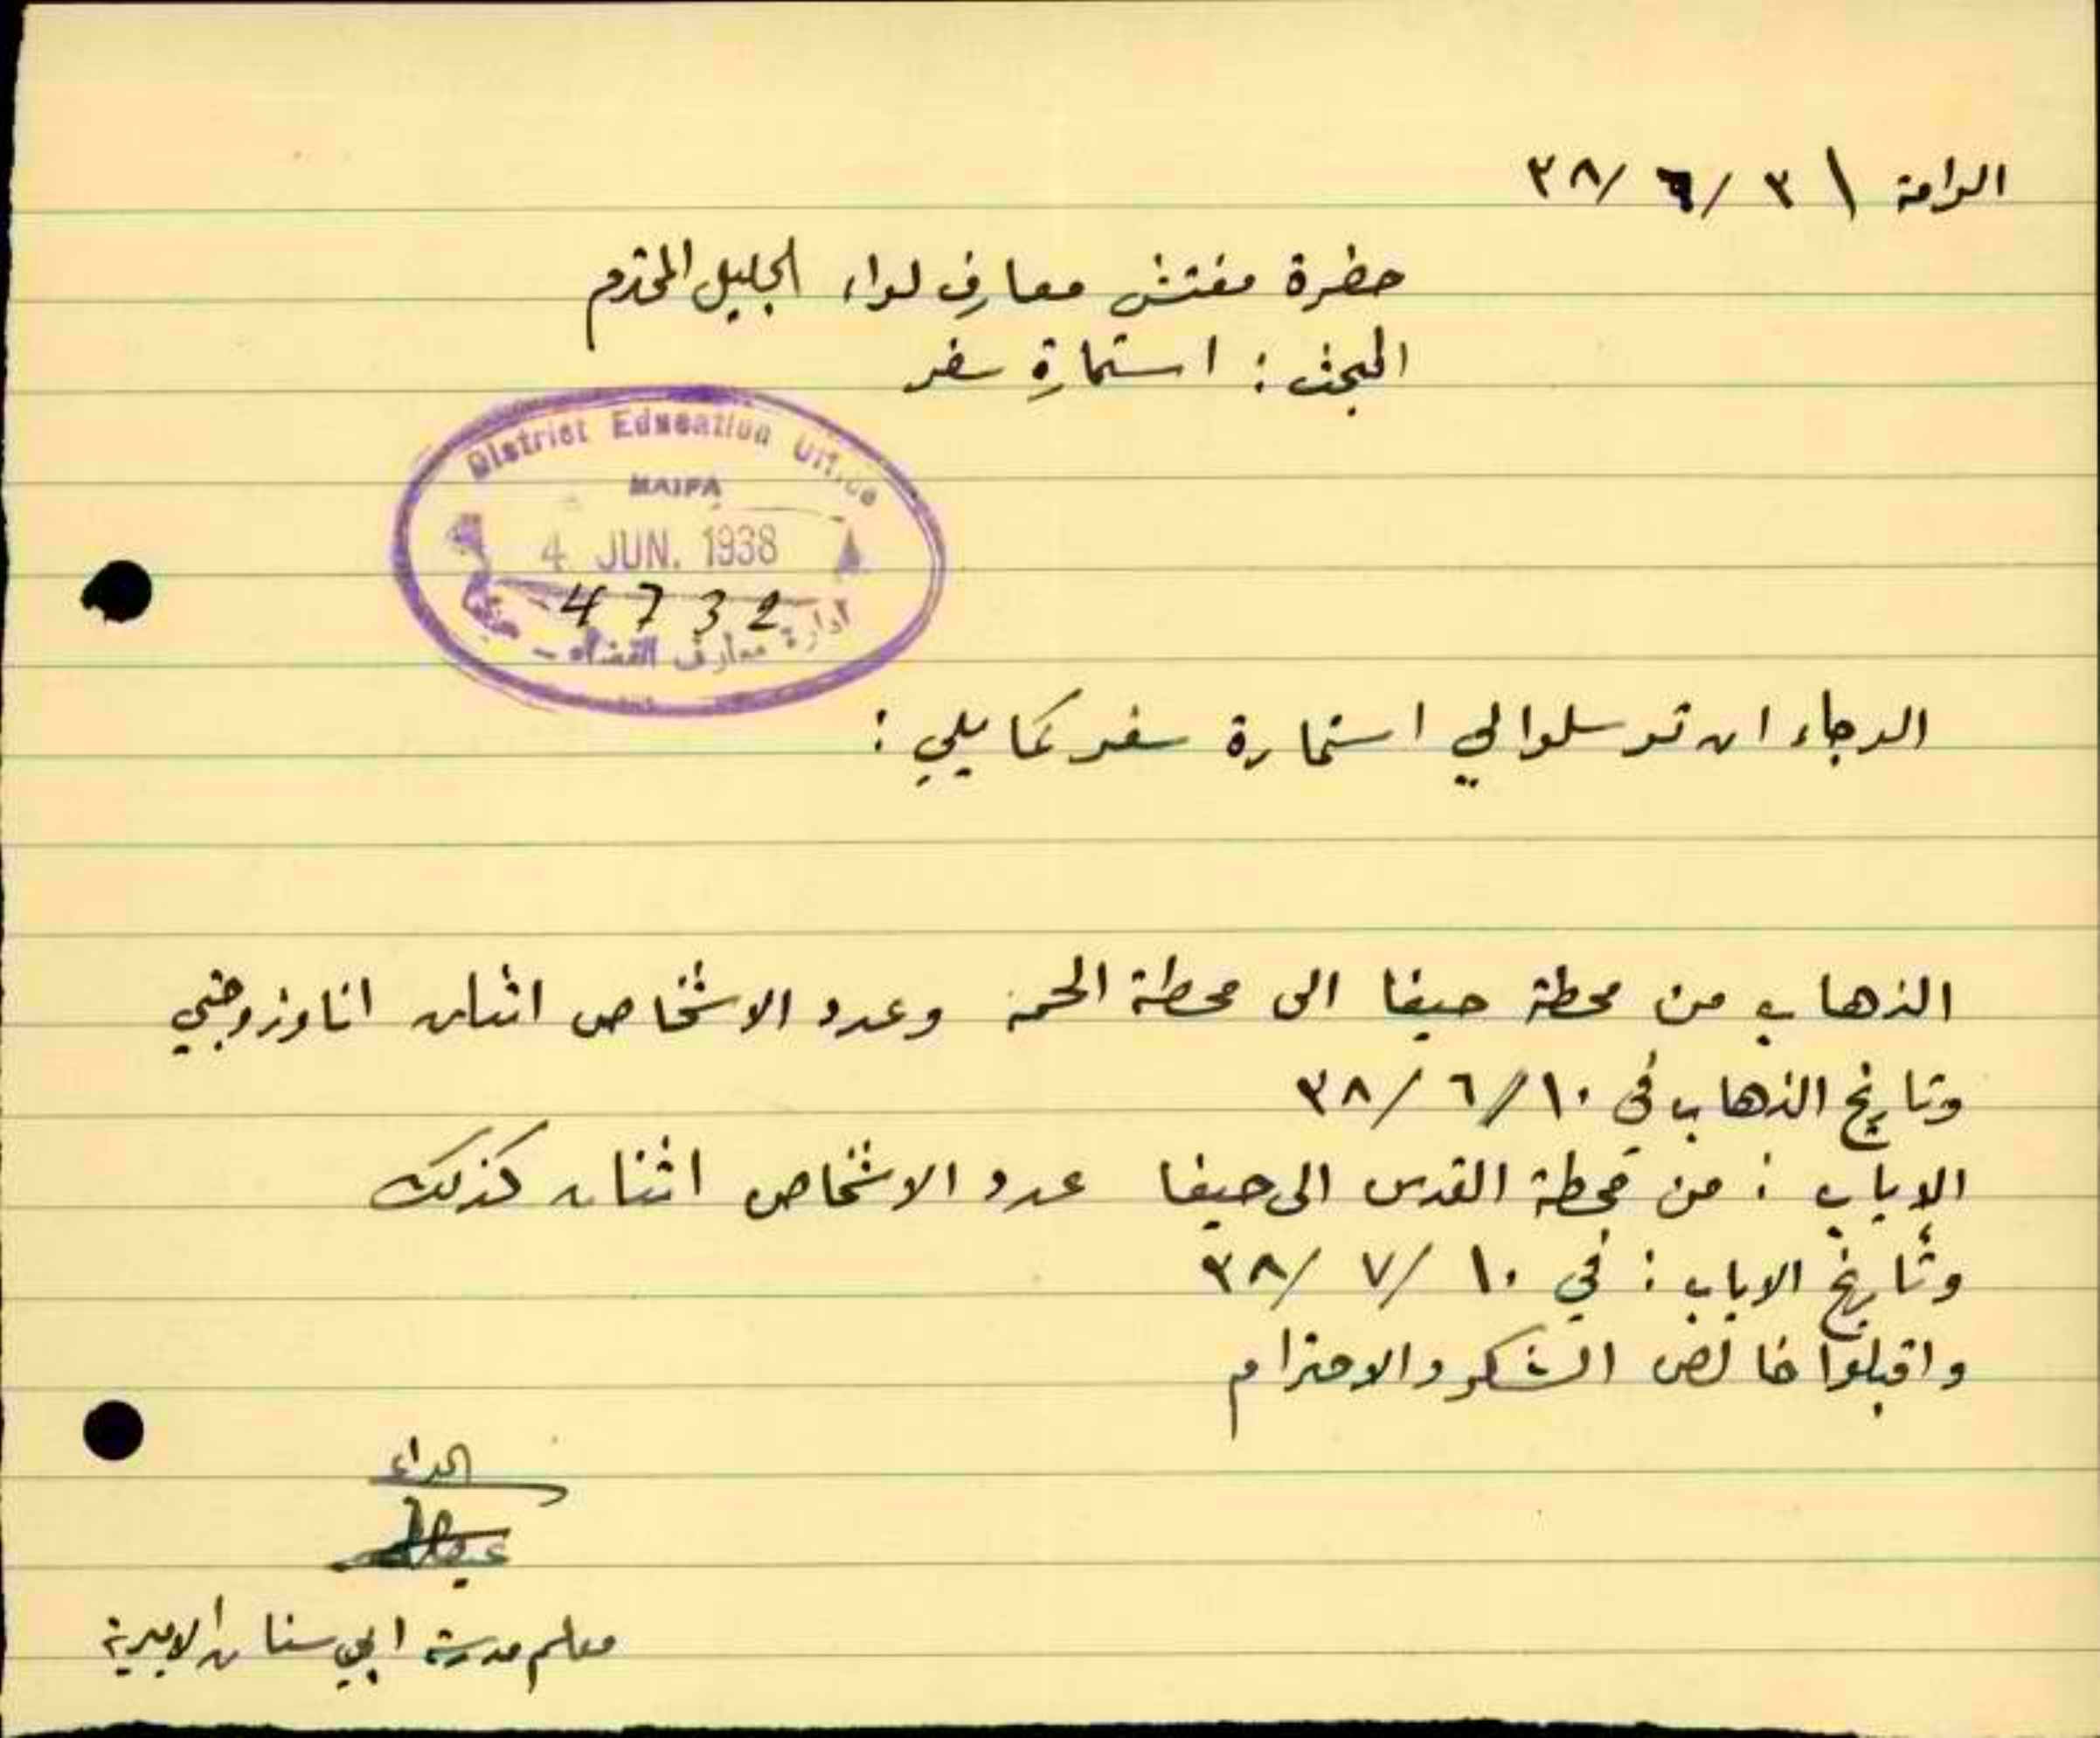 الرامة \ ٣ / ٦ / ٣٨
حضرة مفتش معارف لواء الجليل المحترم
المبحث : استمارة سفر
District Education Office
HAIFA
4 JUN. 1938
4732
ادارة معارف القضاء - حيفا
الرجاء ان ترسلوا لي استمارة سفر كما يلي :
الذهاب من محطة حيفا الى محطة الحمة وعدد الاشخاص اثنان انا وزوجتي
وتاريخ الذهاب في ١٠ / ٦ / ٣٨
الإياب : من محطة القدس الى حيفا عدد الاشخاص اثنان كذلك
وتأريخ الاياب : في ١٠ / ٧ / ٣٨
واقبلوا خالص الشكر والاحترام
معلم مدرسة ابي سنان الاميرية